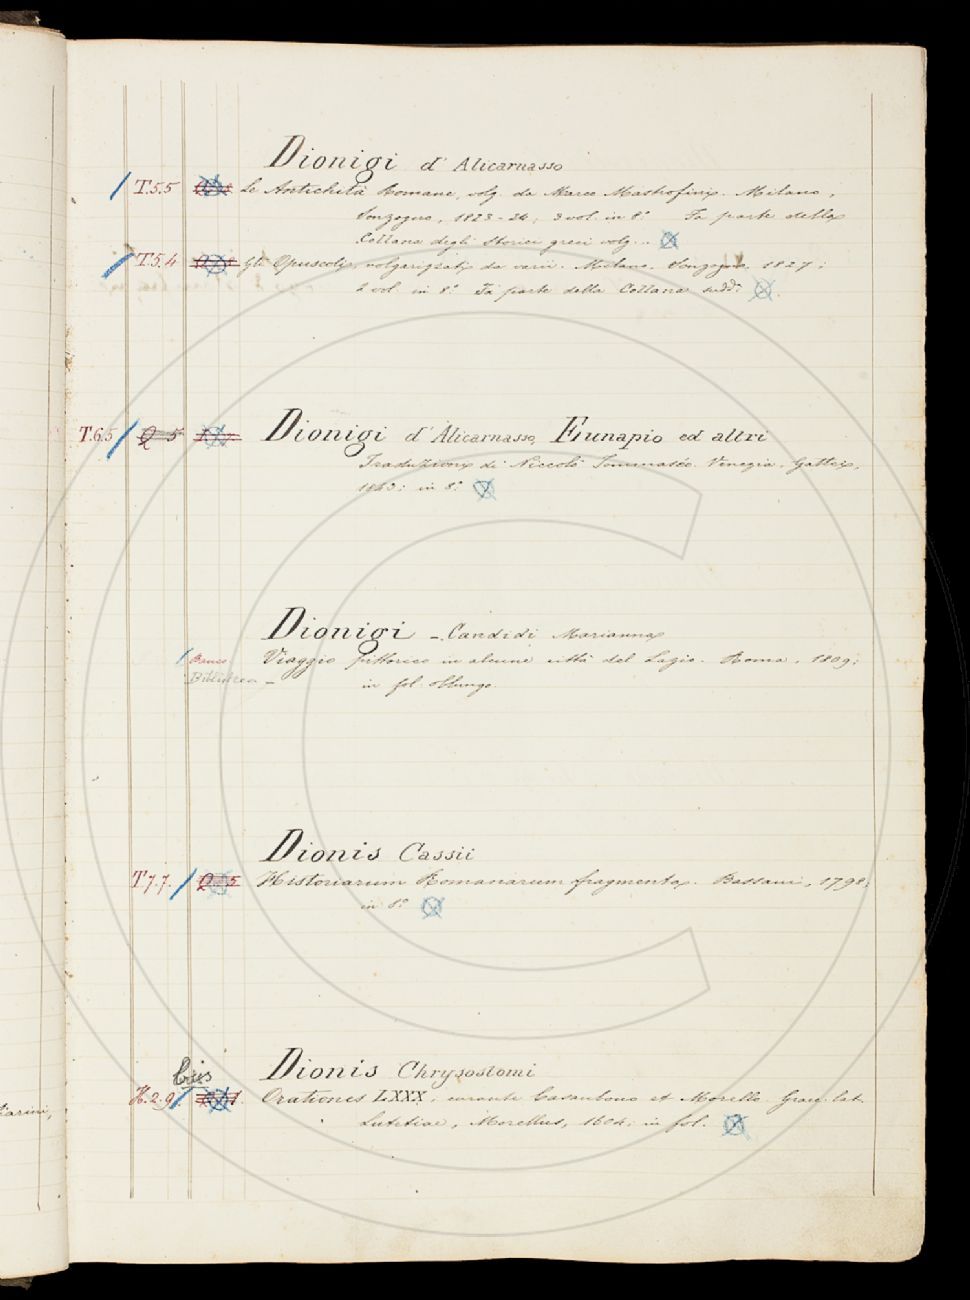 Dionigi d'Alicarnasso
T.5.5 Le Antichità Romane, volg. da Marco Mastrofini. Milano,
Sonzogno, 1823-24; 3 vol. in 8.° Fa parte della
Collana degli storici greci volg...
T.5.4 Gli Opuscoli, volgarizzati da varii. Milano. Sonzogno. 1827;
2 vol. in 8.° Fa parte della Collana sudd.ª
T.6.5 Q 5 Dionigi d'Alicarnasso, Eunapio ed altri
Traduzione di Niccolò Tommaséo. Venezia. Gattei,
1843; in 8.°
Dionigi - Candidi Marianna
Banco Viaggio pittorico in alcune città del Lazio. Roma, 1809;
Biblioteca - in fol. oblungo.
Dionis Cassii
T.7.7. Q 5 Historiarum Romanarum fragmenta. Bassani, 1798;
in 8.°
Dionis Chrysostomi
bis
H.2.9. Orationes LXXX, curante Casaubono et Morello. Graec. lat.
Lutetiae, Morellus, 1604; in fol.
tiarini,